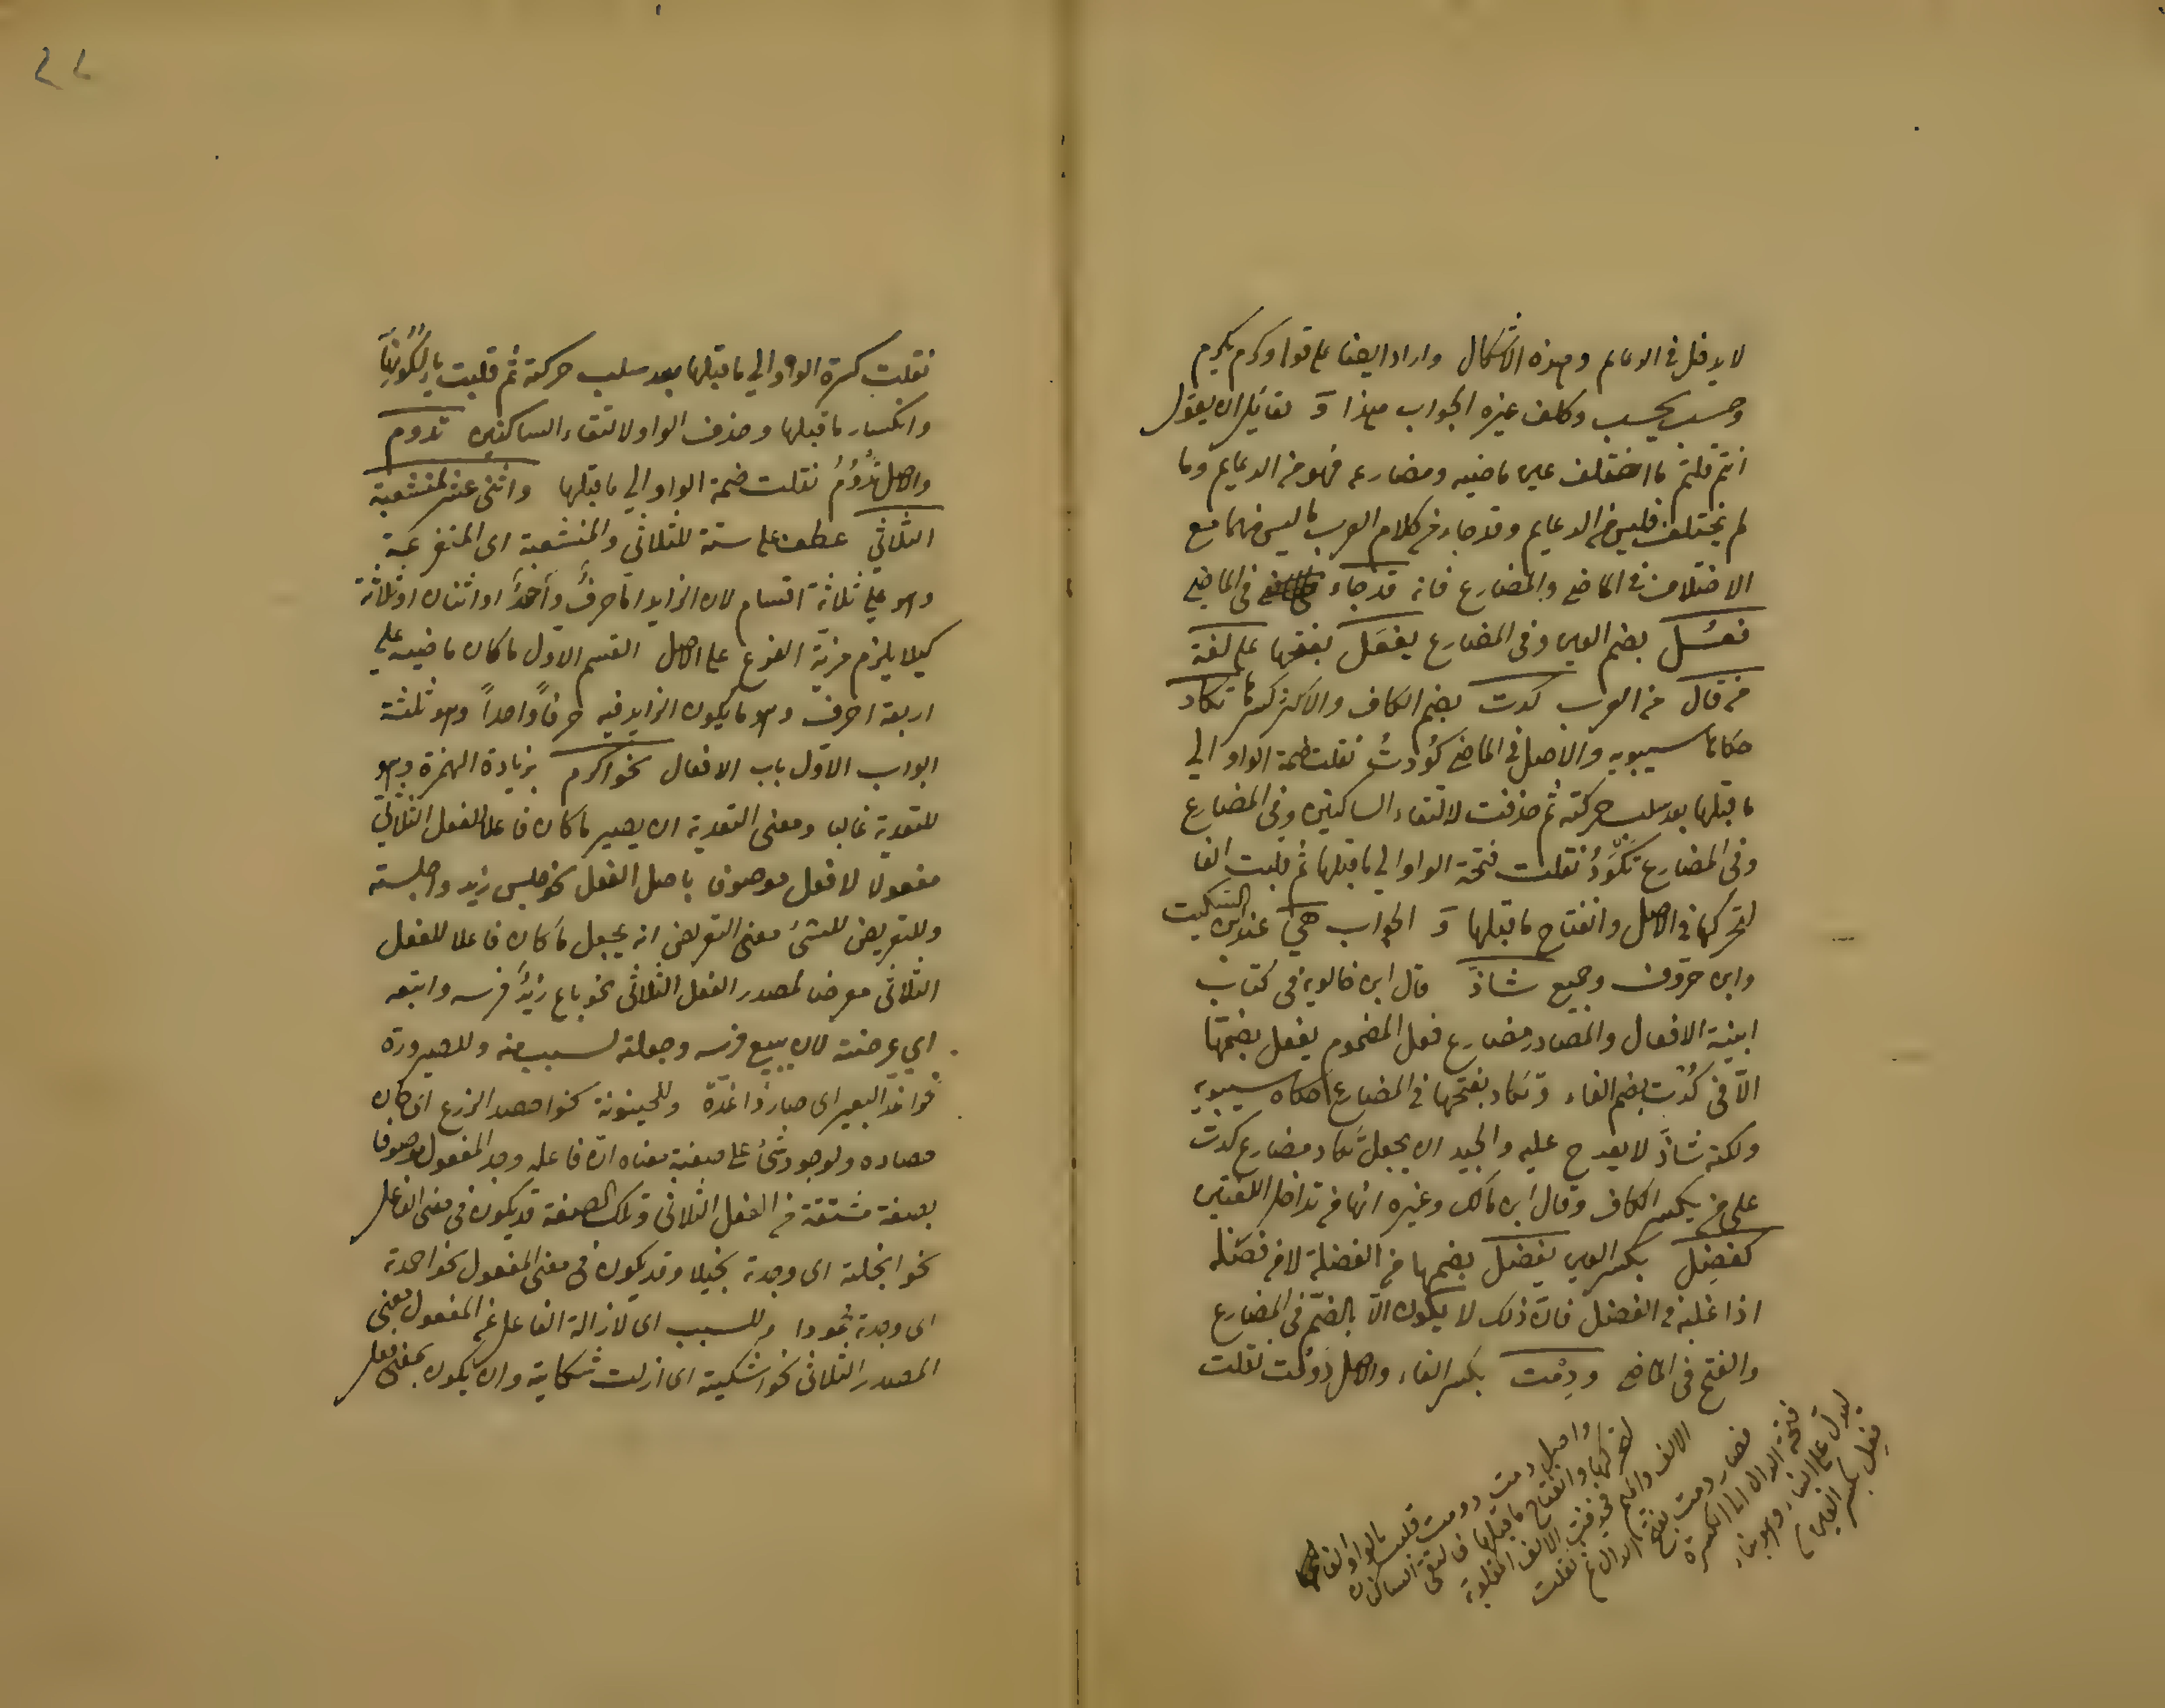 لا يدخل في الدعايم وهذه الاشكال واراد ايضا على قوله وكرم يكرم
وحسب يحسب وكلف غيره الجواب هذا و لقائل ان يقول
انتم قلتم ما اختلف عين ماضيه ومضارعه فهو من الدعايم وما
لم يختلف فليس من الدعايم وقد جاء في كلام العرب ما ليس منهما مع
الاختلاف في الماضي والمضارع فانه قد جاء في الماضي
فعُل بضم العين وفى المضارع يفعَل بفتحها على لغة
من قال من العرب كدت بضم الكاف والاكثر كسرها تكاد
حكاها سيبويه والاصل في الماضي كَوُدتُ نقلت ضمة الواو الي
ما قبلها بعد سلب حركته ثم حذفت لالتقاء الساكنين وفى المضارع
وفى المضارع تكوَدُ نقلت فتحة الواو الي ما قبلها ثم قلبت الفا
لتحركها في الاصل وانفتاح ما قبلها و الجواب هي عند ابن السكيت
وابن خروف وجميع شاذّ قال ابن خالويه في كتاب
ابنية الافعال والمصادر مضارع فعل المضموم يفعل بضمها
الّا في كُدْت بضم الفاء و تكاد بفتحها في المضارع حكاه سيبويه
ولكنه شاذّ لا يعرج عليه والجيد ان يجعل تكاد مضارع كدت
على من يكسر الكاف وقال ابن مالك وغيره انها من تداخل اللغتين
كفضِل بكسر العين يفضُل بضمها من الفضلة لا من فضله
اذا غلبه في الفضل فانّ ذلك لا يكون الّا بالضمّ في المضارع
والفتح في الماضي ودِمْت بكسر الفاء والاصل دَوِمْت نقلت
واصل دمت دومت قلبت الواو الفا
لتحركها وانفتاح ما قبلها فالتقى الساكنان
الالف والميم فحذفت الالف المقلوبة
فصار دمت بفتح الدال ثم نقلت
فتحة الدال الى الكسرة
ليدل على البناء وهو بناء
فعِل بكسر العين
نقلت كسرة الواو الي ما قبلها بعد سلب حركته ثم قلبت ياء لسكونها
وانكسار ما قبلها وحذف الواو لالتقاء الساكنين تدوم
والاصل تَدْوُمُ نقلت ضمة الواو الي ما قبلها واثنى عشر لمنشعبة
الثلاثي عطف على ستة للثلاثي والمنشعبة اى المتفرعة
وهو على ثلاثة اقسام لان الزايد امّا حرفٌ واحدٌ او اثنان او ثلاثة
كيلا يلزم مزيّة الفرع على الاصل القسم الاوّل ما كان ماضيه على
اربعة احرف وهو ما يكون الزايد فيه حرفاً واحداً وهو ثلثة
ابواب الاوّل باب الافعال نحو اكرم بزيادة الهمزة وهو
للتعدية غالبا ومعنى التعدية ان يصير ما كان فاعلا للفعل الثلاثي
مفعولا لافعل موصوفا باصل الفعل نحو جلس زيد واجلسته
وللتعريض للشئ معنى التعريض انه يجعل ما كان فاعلا للفعل
الثلاثى معرضا لمصدر الفعل الثلاثى نحو باع زيدٌ فرسه وابتعه
اي عرضته لان يبيع فرسه وجعلته لسبب منه وللصيرورة
نحو اغدّ البعير اى صار ذا غدّة وللحينونة نحو احصد الزرع اى حان
حصاده ولوجود شئ على صفية معناه انّ فاعله وجد المفعول موصوفا
بصفة مشتقة من الفعل الثلاثى وتلك الصفة قد يكون في معنى الفاعل
نحو ابخلته اى وجدته بخيلا وقد يكون في معنى المفعول نحو احمدته
اى وجدته محمودا وللسبب اى لازالة الفاعل عن المفعول معنى
المصدر الثلاثى نحو اشكيته اى ازلت شكايته وان يكون بمعنى فعل